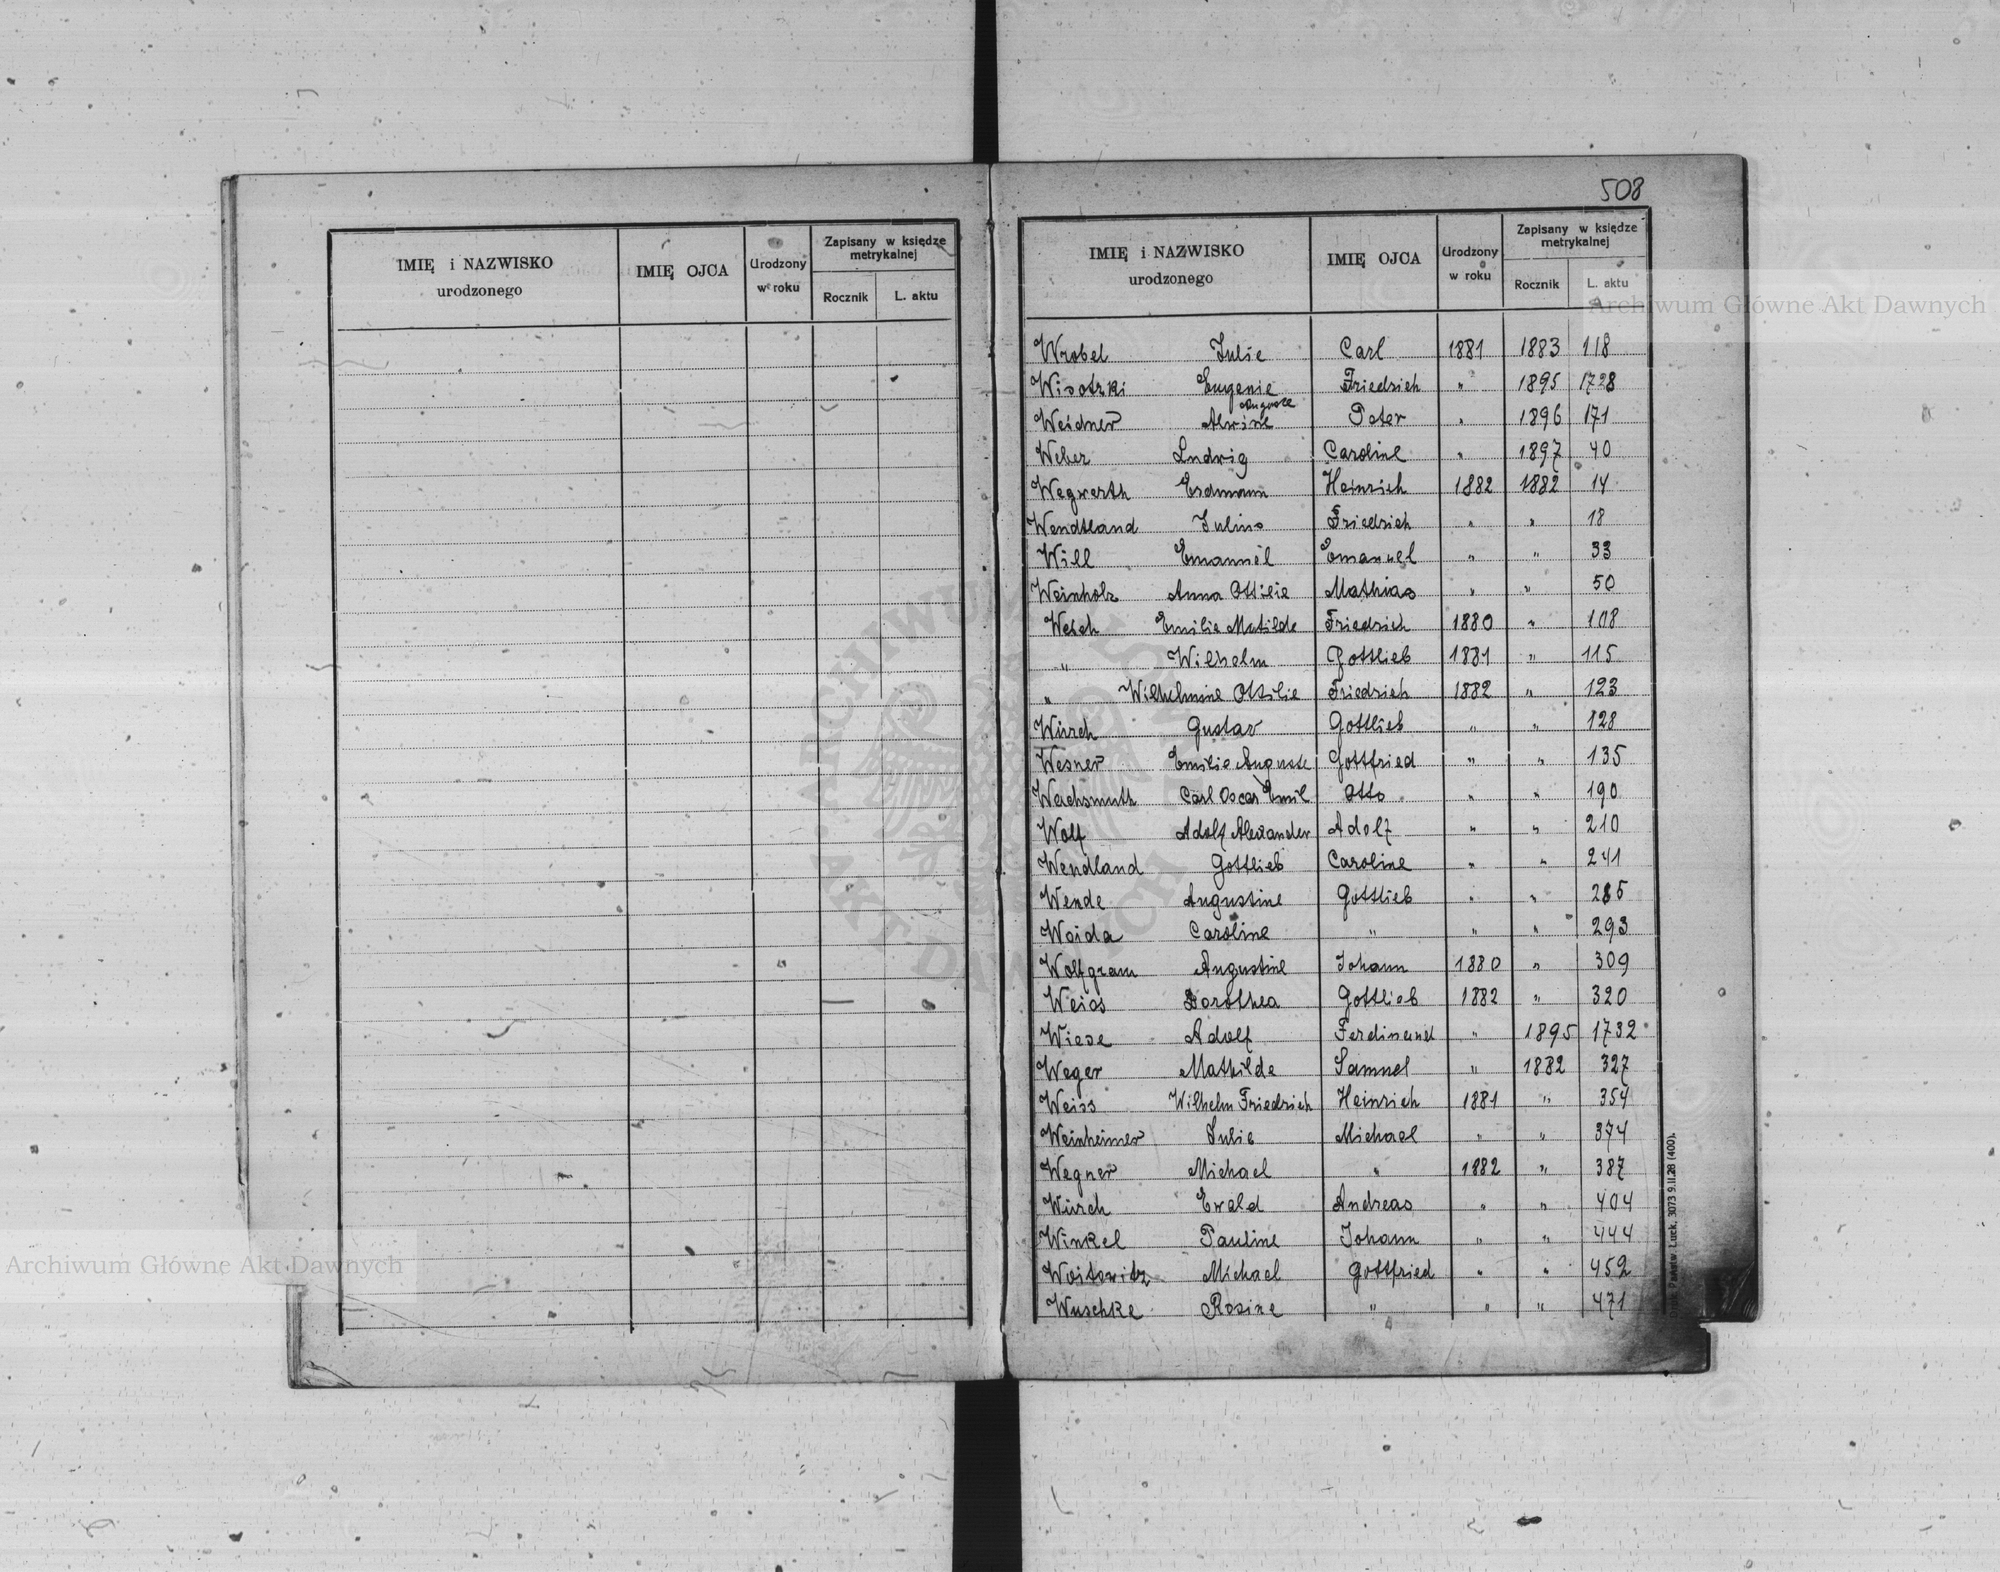 508
IMIĘ i NAZWISKO urodzonego IMIĘ OJCA Urodzony w roku Zapisany w księdze metrykalnej Rocznik L. aktu
IMIĘ i NAZWISKO urodzonego IMIĘ OJCA Urodzony w roku Zapisany w księdze metrykalnej Rocznik L. aktu
Archiwum Główne Akt Dawnych
Wrobel Julie Carl 1881 1883 118
Wisotzki Eugenie Friedrich " 1895 1728
Weidner Alwine Auguste Peter " 1896 171
Weber Ludwig Caroline " 1897 40
Wegwerth Erdmann Heinrich 1882 1882 14
Wendtland Julius Friedrich " " 18
Will Emanuel Emanuel " " 33
Weinholz Anna Ottilie Mathias " " 50
Weich Emilie Matilde Friedrich 1880 " 108
" Wilhelm Gottlieb 1881 " 115
" Wilhelmine Ottilie Friedrich 1882 " 123
Wirsch Gustav Gottlieb " " 128
Wesner Emilie Auguste Gottfried " " 135
Weichsmuth Carl Oscar Emil Otto " " 190
Wolf Adolf Alexander Adolf " " 210
Wendland Gottlieb Caroline " " 241
Wende Augustine Gottlieb " " 285
Woida Caroline " " " 293
Wolfgram Augustine Johann 1880 " 309
Weiss Dorothea Gottlieb 1882 " 320
Wiese Adolf Ferdinand " 1895 1732
Weger Mathilde Samuel " 1882 327
Weiss Wilhelm Friedrich Heinrich 1881 " 354
Weinheimer Julie Michael " " 374
Wegner Michael " 1882 " 387
Wirsch Ewald Andreas " " 404
Winkel Pauline Johann " " 444
Woitowitz Michael Gottfried " " 452
Wuschke Rosine " " " 471
Państw. Łuck, 3073 9.II.28 (400).
Archiwum Główne Akt Dawnych
ARCHIWUM GŁÓWNE AKT DAWNYCH